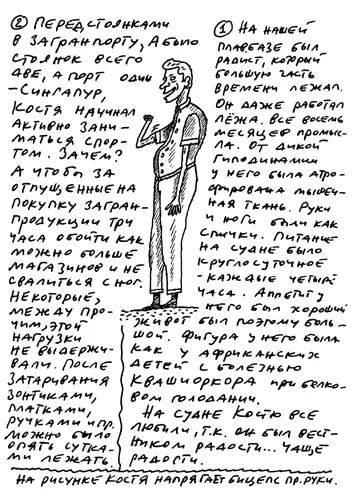 ① НА НАШЕЙ
ПЛАВБАЗЕ БЫЛ
РАДИСТ, КОТОРЫЙ
БОЛЬШУЮ ЧАСТЬ
ВРЕМЕНИ ЛЕЖАЛ.
ОН ДАЖЕ РАБОТАЛ
ЛЁЖА. ВСЕ ВОСЕМЬ
МЕСЯЦЕВ ПРОМЫС-
ЛА. ОТ ДИКОЙ
ГИПОДИНАМИИ
У НЕГО БЫЛА АТРО-
ФИРОВАНА МЫШЕЧ-
НАЯ ТКАНЬ. РУКИ
И НОГИ БЫЛИ КАК
СПИЧКИ. ПИТАНИЕ
НА СУДНЕ БЫЛО
КРУГЛОСУТОЧНОЕ
- КАЖДЫЕ ЧЕТЫРЕ
ЧАСА. АППЕТИТ У
НЕГО БЫЛ ХОРОШИЙ
ЖИВОТ БЫЛ ПОЭТОМУ БОЛЬ-
ШОЙ. ФИГУРА У НЕГО БЫЛА
КАК У АФРИКАНСКИХ
ДЕТЕЙ С БОЛЕЗНЬЮ
КВАШИОРКОРА ПРИ БЕЛКО-
ВОМ ГОЛОДАНИИ.
НА СУДНЕ КОСТЮ ВСЕ
ЛЮБИЛИ, Т.К. ОН БЫЛ ВЕСТ-
НИКОМ РАДОСТИ... ЧАЩЕ
РАДОСТИ.
② ПЕРЕД СТОЯНКАМИ
В ЗАГРАНПОРТУ, А БЫЛО
СТОЯНОК ВСЕГО
ДВЕ, А ПОРТ ОДИН
- СИНГАПУР,
КОСТЯ НАЧИНАЛ
АКТИВНО ЗАНИ-
МАТЬСЯ СПОР-
ТОМ. ЗАЧЕМ?
А ЧТОБЫ ЗА
ОТПУЩЕННЫЕ НА
ПОКУПКУ ЗАГРАН-
ПРОДУКЦИИ ТРИ
ЧАСА ОБОЙТИ КАК
МОЖНО БОЛЬШЕ
МАГАЗИНОВ И НЕ
СВАЛИТЬСЯ С НОГ.
НЕКОТОРЫЕ,
МЕЖДУ ПРО-
ЧИМ, ЭТОЙ
НАГРУЗКИ
НЕ ВЫДЕРЖИ-
ВАЛИ. ПОСЛЕ
ЗАТАРИВАНИЯ
ЗОНТИКАМИ,
ПЛАТКАМИ,
РУЧКАМИ И ПР.
МОЖНО БЫЛО
ОПЯТЬ СУТКА-
МИ ЛЕЖАТЬ.
НА РИСУНКЕ КОСТЯ НАПРЯГАЕТ БИЦЕПС ПР. РУКИ.